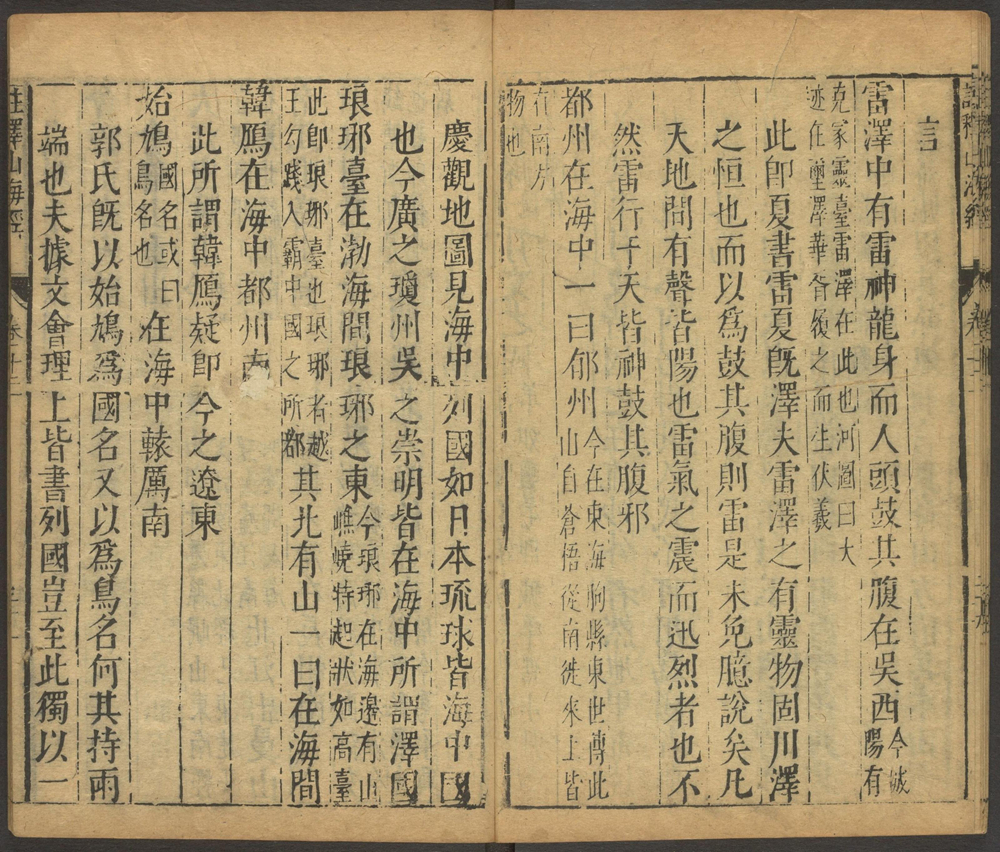 言
雷澤中有雷神龍身而人頭鼓其腹在吳西今城陽有
克冢靈臺雷澤在此也河圖曰大
迹在雷澤華胥履之而生伏羲
此即夏書雷夏既澤夫雷澤之有靈物固川澤
之恒也而以為鼓其腹則雷是未免臆說矣凡
天地間有聲皆陽也雷氣之震而迅烈者也不
然雷行于天皆神鼓其腹邪
都州在海中一曰郁州今在東海朐縣東世傳此
山自蒼梧從南徙來上皆
有南方
物也
慶觀地圖見海中列國如日本琉球皆海中國
也今廣之瓊州吳之崇明皆在海中所謂澤國
琅琊臺在渤海間琅琊之東今琅琊在海邊有山
嶕嶢特起狀如高臺
此即琅琊臺也琅琊者越
王勾踐入霸中國之所都其北有山一曰在海間
韓鴈在海中都州南
此所謂韓鴈疑即今之遼東
始鳩國名或曰
鳥名也在海中轅厲南
郭氏既以始鳩為國名又以為鳥名何其持兩
端也夫據文會理上皆書列國豈至此獨以一
註釋山海經
卷十三